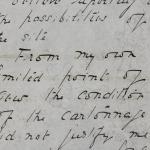 the possibilities of
the site
From my own
limited point of
view the condition
of the cartonnage
did not justify me